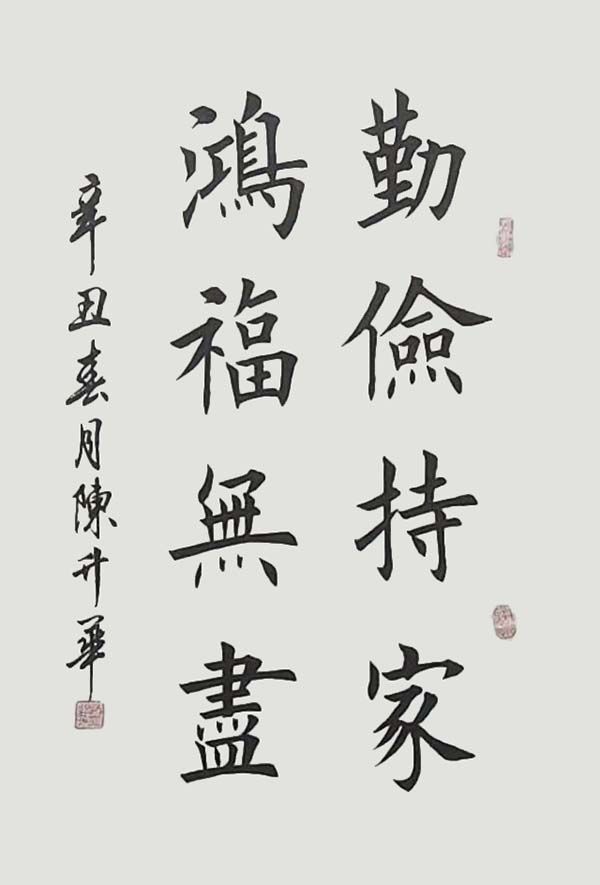 勤儉持家
鴻福無盡
辛丑春月陳升華